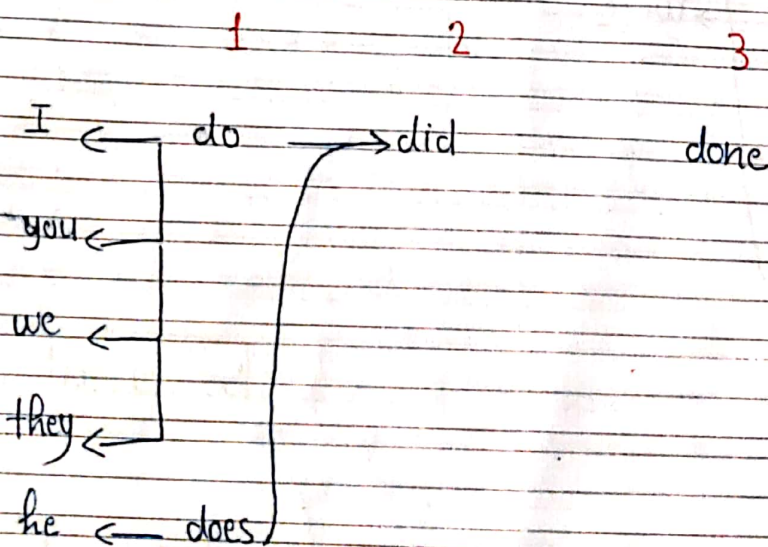 1 2 3
I ← do → did done
you ←
we ←
they ←
he ← does